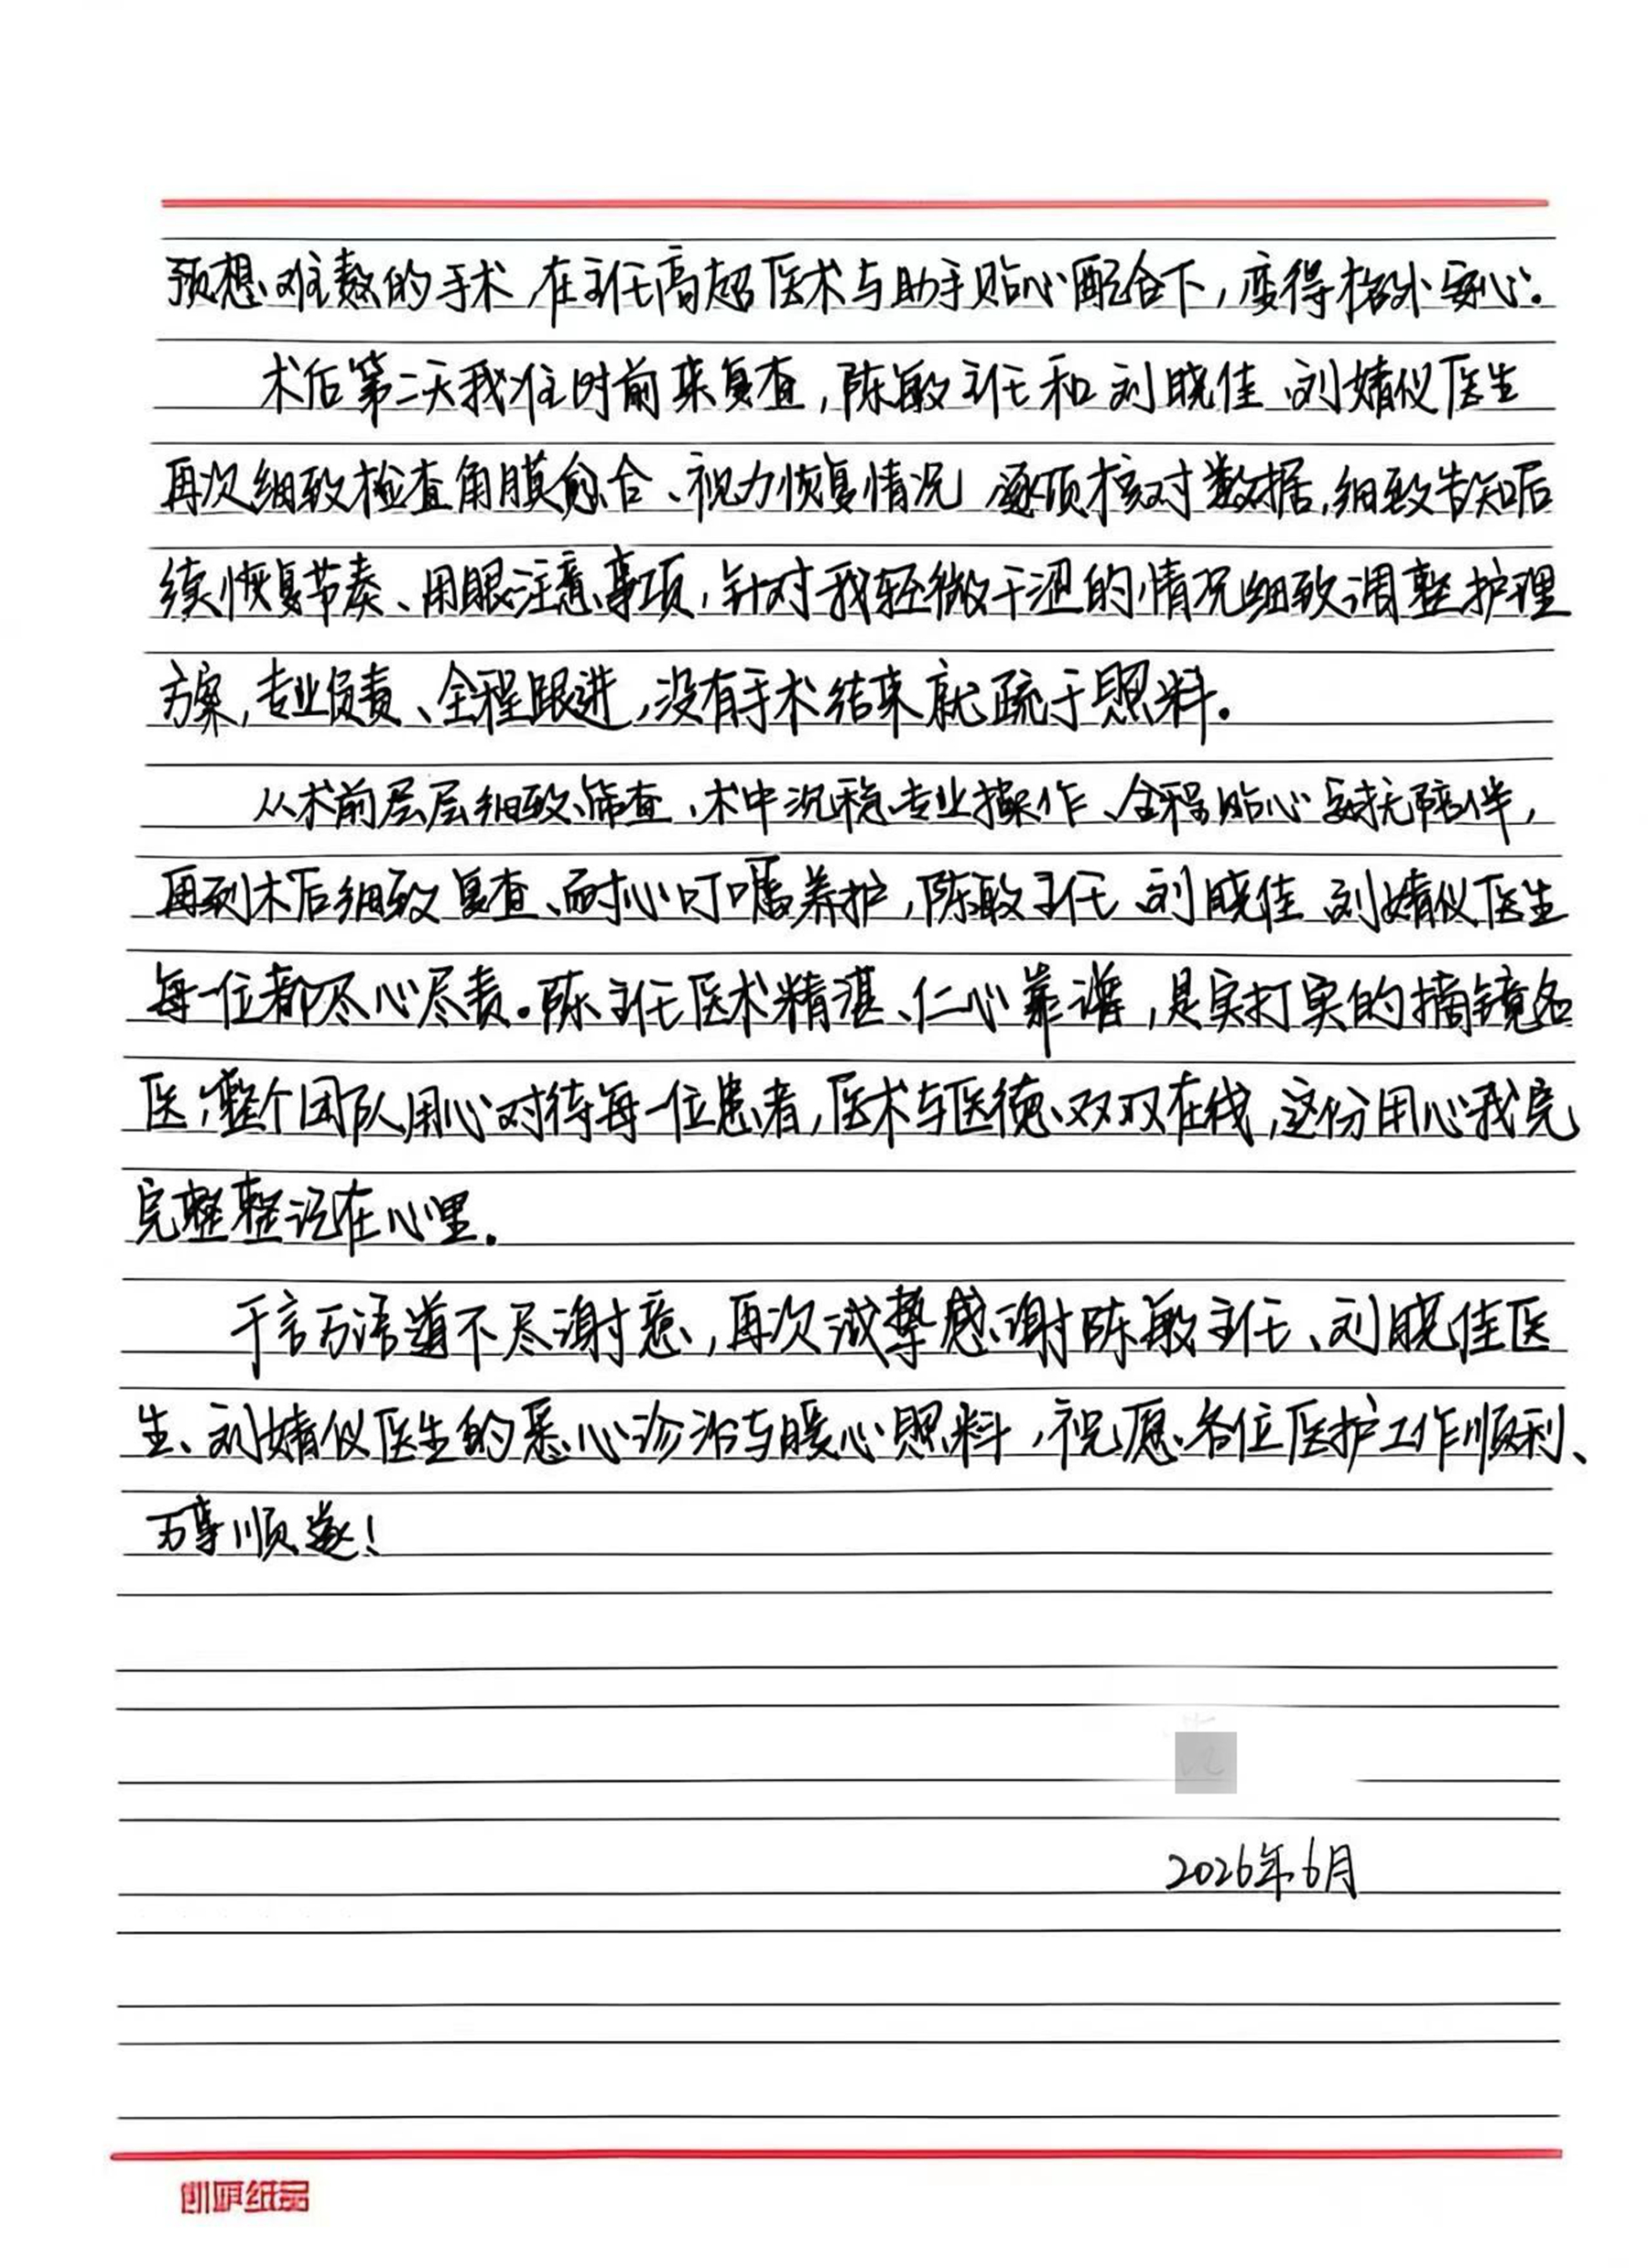 预想难熬的手术,在主任高超医术与助手贴心配合下,变得格外安心。
术后第二天我准时前来复查,陈敏主任和刘晓佳、刘婧仪医生
再次细致检查角膜愈合、视力恢复情况,逐项核对数据,细致告知后
续恢复节奏、用眼注意事项,针对我轻微干涩的情况细致调整护理
方案,专业负责、全程跟进,没有手术结束就疏于照料。
从术前层层细致筛查、术中沉稳专业操作、全程贴心安抚陪伴,
再到术后细致复查、耐心叮嘱养护,陈敏主任、刘晓佳、刘婧仪医生
每一位都尽心尽责。陈主任医术精湛、仁心靠谱,是实打实的摘镜名
医,整个团队用心对待每一位患者,医术与医德双双在线,这份用心我完
完整整记在心里。
千言万语道不尽谢意,再次诚挚感谢陈敏主任、刘晓佳医
生、刘婧仪医生的悉心诊治与暖心照料,祝愿各位医护工作顺利、
万事顺遂!
2026年6月
纸品